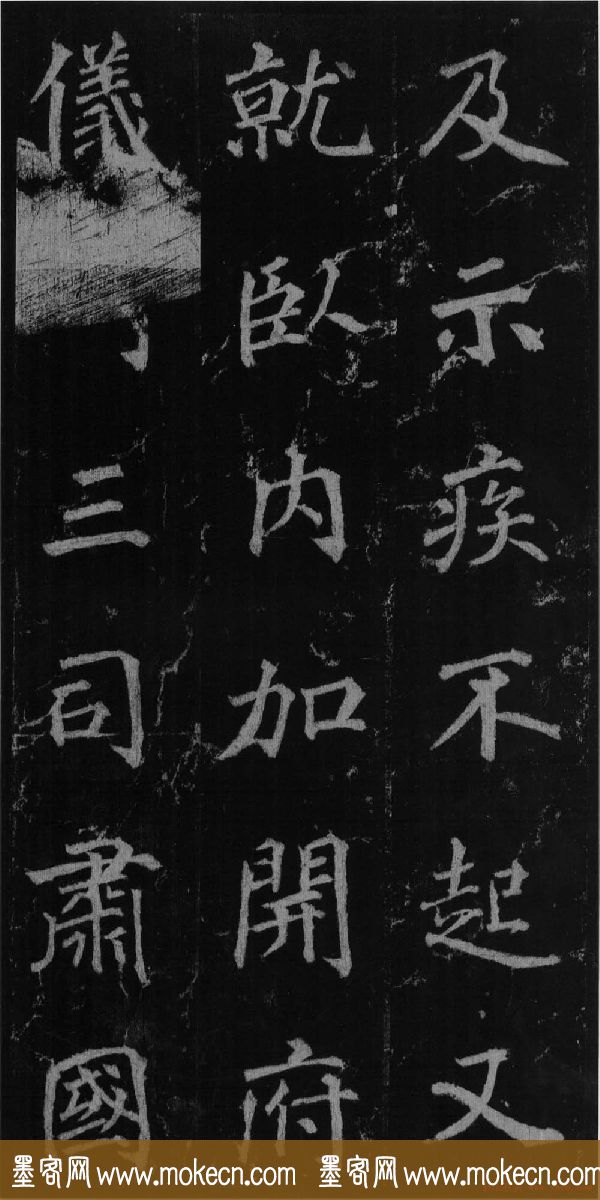 及示疾不起又
就臥内加開府
儀三司肅國
墨客网 www.mokecn.com 墨客网 www.mokecn.com